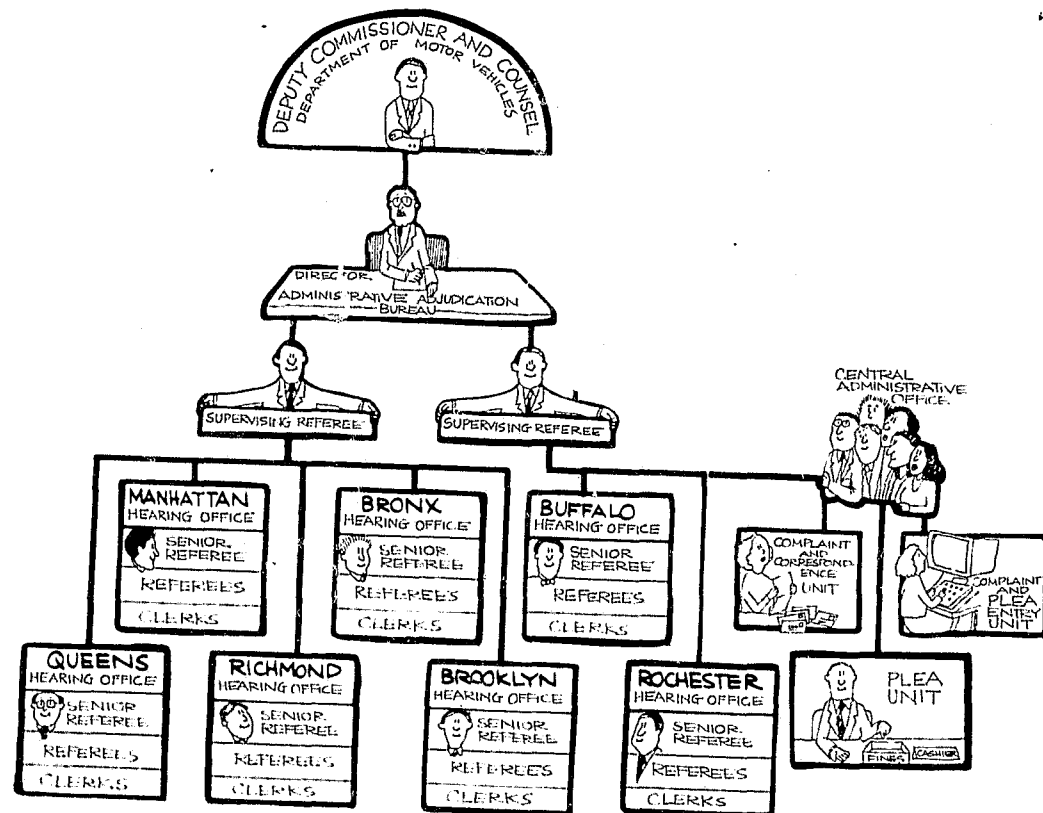 DEPUTY COMMISSIONER AND COUNSEL
DEPARTMENT OF MOTOR VEHICLES
DIRECTOR
ADMINISTRATIVE ADJUDICATION
BUREAU
SUPERVISING REFEREE
SUPERVISING REFEREE
CENTRAL
ADMINISTRATIVE
OFFICE
MANHATTAN
HEARING OFFICE
SENIOR
REFEREE
REFEREES
CLERKS
BRONX
HEARING OFFICE
SENIOR
REFEREE
REFEREES
CLERKS
BUFFALO
HEARING OFFICE
SENIOR
REFEREE
REFEREES
CLERKS
COMPLAINT
AND
CORRESPOND
ENCE
UNIT
COMPLAINT
AND
PLEA
ENTRY
UNIT
QUEENS
HEARING OFFICE
SENIOR
REFEREE
REFEREES
CLERKS
RICHMOND
HEARING OFFICE
SENIOR
REFEREE
REFEREES
CLERKS
BROOKLYN
HEARING OFFICE
SENIOR
REFEREE
REFEREES
CLERKS
ROCHESTER
HEARING OFFICE
SENIOR
REFEREE
REFEREES
CLERKS
PLEA
UNIT
FINES
CASHIER